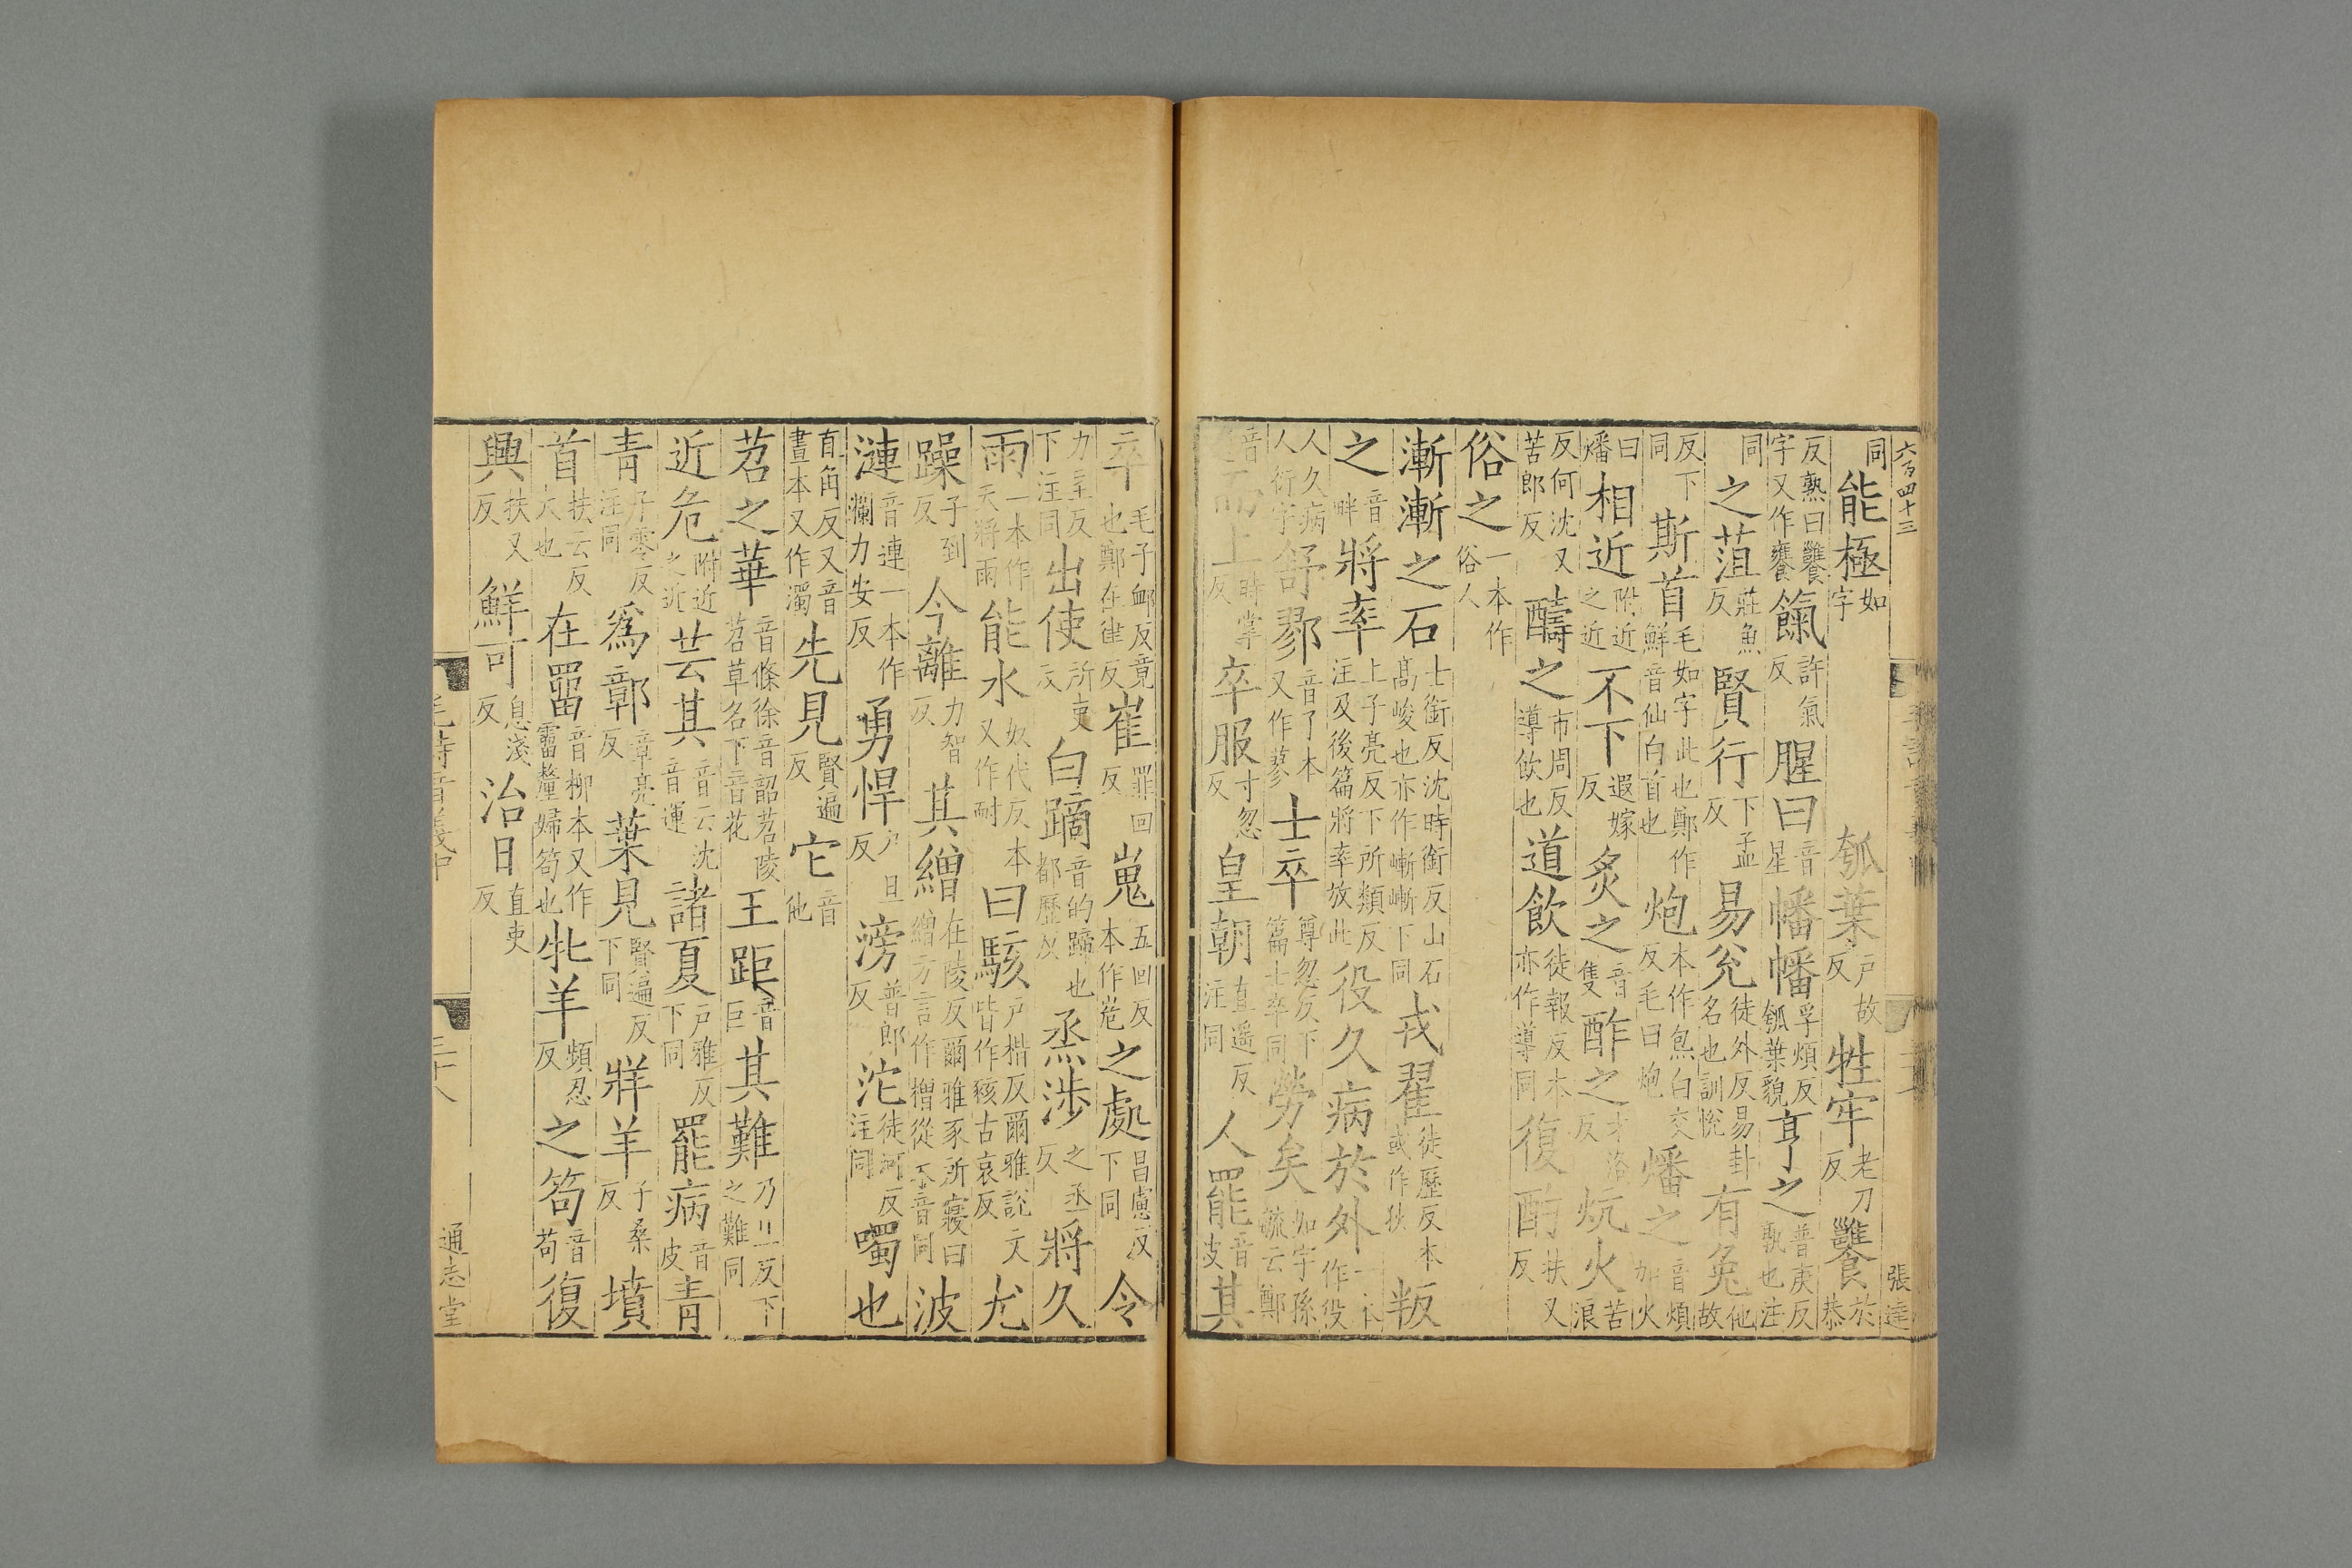 六百四十三
張達
同能極如字瓠葉戶故反牲牢老刀反饔於恭
反熟曰饔字又作饔餼許氣反腥曰音星幡幡孚煩反瓠葉貌亨之普庚反孰也注
同之菹莊魚反賢行下孟反易兊徒外反易卦名也訓悅有兔他故
反下同斯首毛如字此也鄭作鮮音仙白首也炮本作炰白交反毛曰炮燔之音煩加火
曰燔相近附近之近不下遐嫁反炙之音隻酢之才洛反炕火苦浪
反何沈又苦郎反醻之市周反導飲也道飲徒報反本亦作導同復酌扶又反
俗之一本作俗人
漸漸之石士銜反沈時銜反山石高峻也亦作嶃嶃下同戎翟徒歷反本或作狄叛
之音畔將率上子亮反下所類反注及後篇將率放此役久病於外一本作役
人久病人衍字舒鄝音了本又作蓼士卒尊忽反下篇士卒同勞矣如字孫毓云鄭
音而上時掌反卒服寸忽反皇朝直遙反注同人罷音皮其
卒毛子衈反竟也鄭在律反崔罪回反嵬五回反本作峞之處昌慮反下同令
力呈反下注同出使所吏反白蹢音的蹄也都歷反烝涉之丞反將久
雨一本作天將雨能水奴代反本又作耐曰駭戶楷反爾雅說文皆作豥古哀反尤
躁子到反今離力智反其繒在陵反爾雅豕所寢曰繒方言作橧從木音同波
漣音連一本作瀾力安反勇悍戶旦反滂普郎反沱徒河反注同噣也
直角反又音晝本又作濁先見賢遍反它音他
苕之華音條徐音韶苕陵苕草名下音花王距音巨其難乃旦反下之難同
近危附近之近芸其音云沈音運諸夏戶雅反下同罷病音皮青
青子零反注同爲鄣章亮反葉見賢遍反下同牂羊子桑反墳
首扶云反大也在罶音柳本又作霤釐婦笱也牝羊頻忍反之笱音苟復
興扶又反鮮可息淺反治日直吏反
毛詩音義中
二十八
通志堂